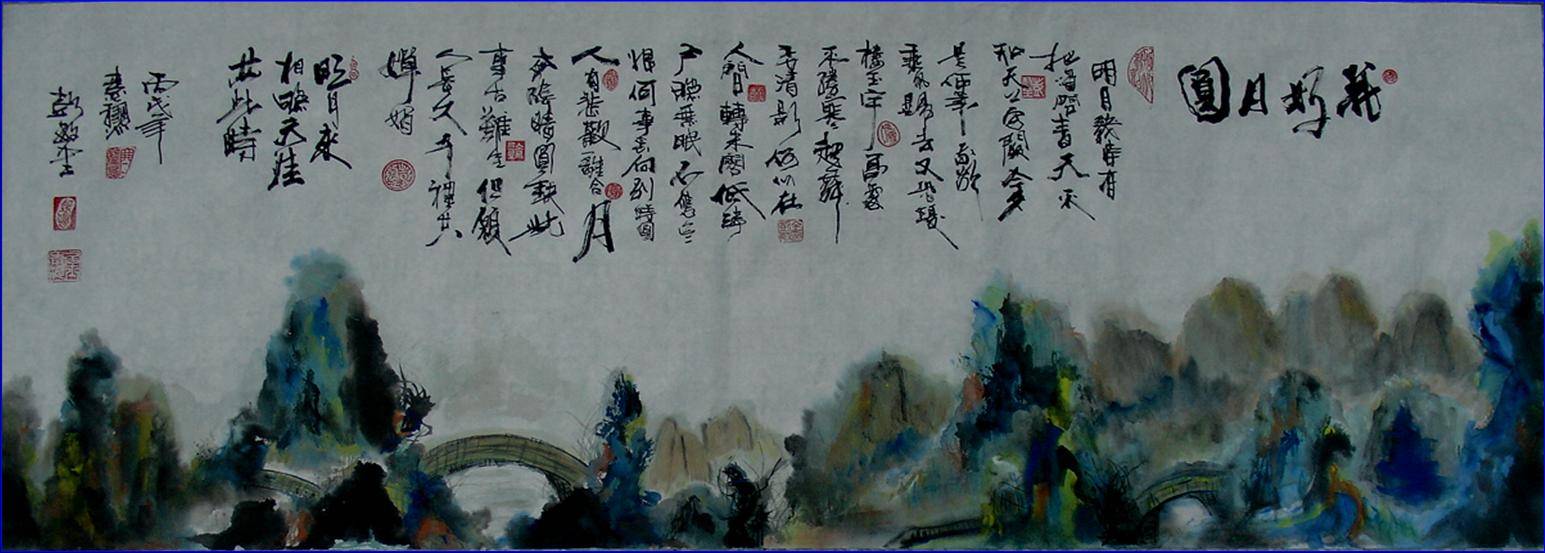 花好月圓
明月幾時有
把酒問青天不
知天上宮闕今夕
是何年我欲
乘風歸去又恐瓊
樓玉宇高處
不勝寒起舞
弄清影何似在
人間轉朱閣低綺
戶照無眠不應有
恨何事長向別時圓
人有悲歡離合月
有陰晴圓缺此
事古難全但願
人長久千裡共
嬋娟
明月來
相映天涯
共此時
丙戌年